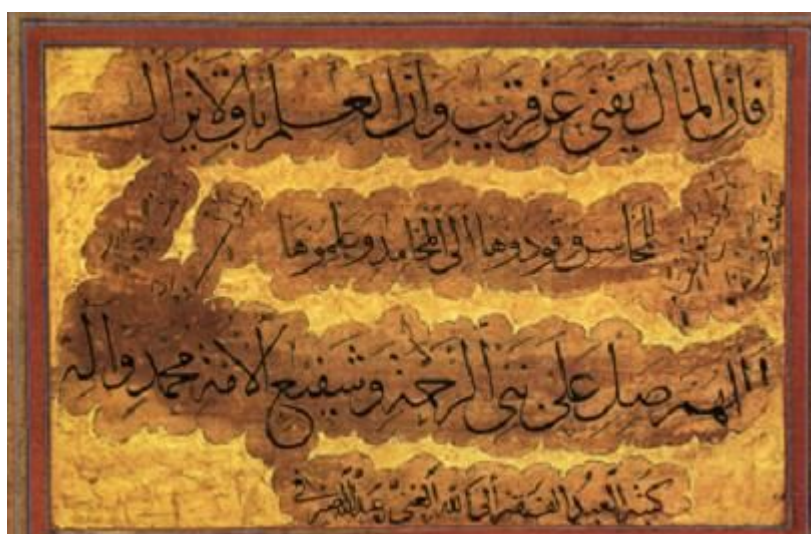 فان المال يفنى عن قريب وان العلم باق لا يزال
للمحاسن وقودوها الى المحامد وعلموها
اللهم صل على نبي الرحمة وشفيع الامة محمد واله
كتبه العبد الفقير الى الله الغني عبدالله